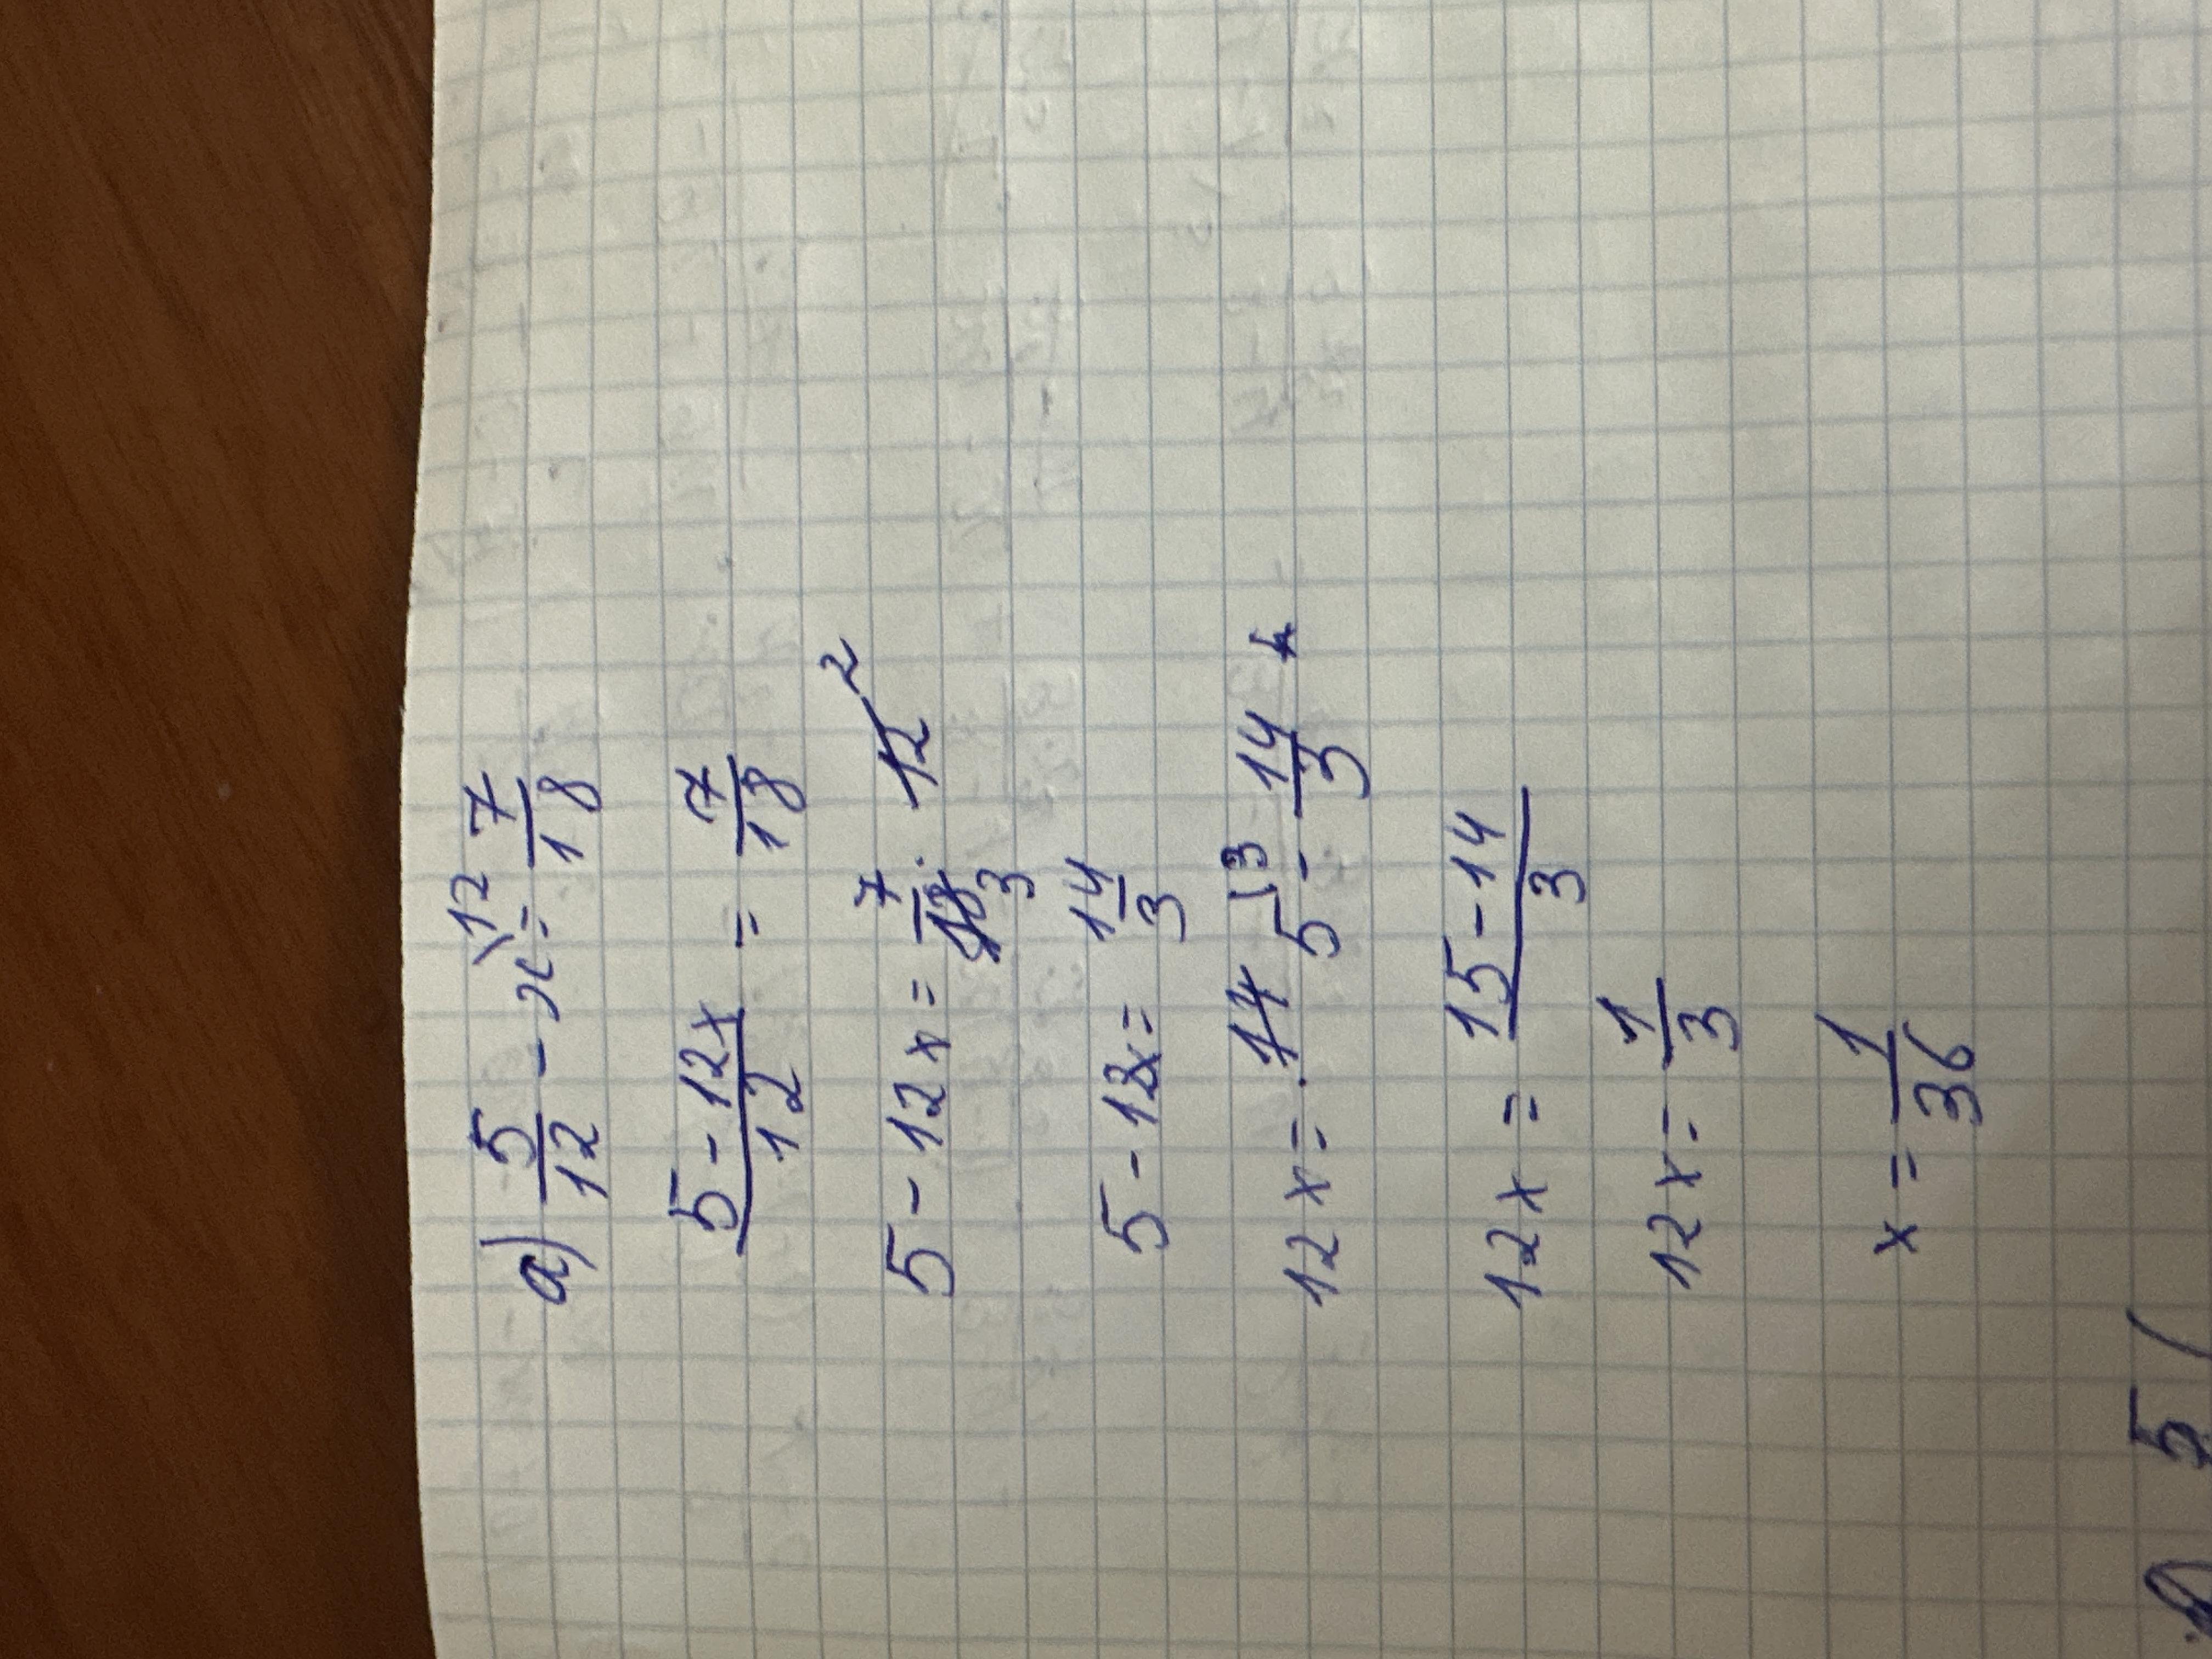 а) 5/12 - x\12 = 7/18
(5 - 12x)/12 = 7/18
5 - 12x = 7/18 3 · 12 2
5 - 12x = 14/3
12x = 5\3 - 14/3
12x = (15 - 14)/3
12x = 1/3
x = 1/36
5 (